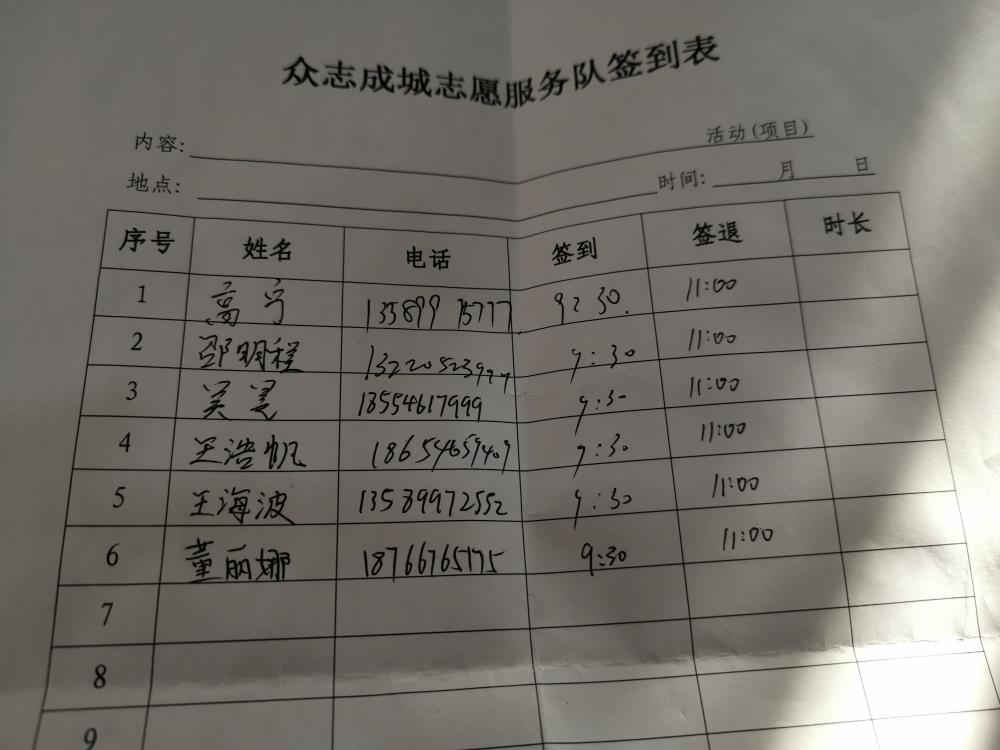 众志成城志愿服务队签到表
内容: 活动(项目)
地点: 时间: 月 日
序号 姓名 电话 签到 签退 时长
1 高宁 13589975777 9:30. 11:00
2 邵明程 9:30 11:00
3 吴昊 13554617999 9:30 11:00
4 王浩帆 18654659409 9:30 11:00
5 王海波 13589972552 9:30 11:00
6 董丽娜 18766765775 9:30 11:00
7
8
9